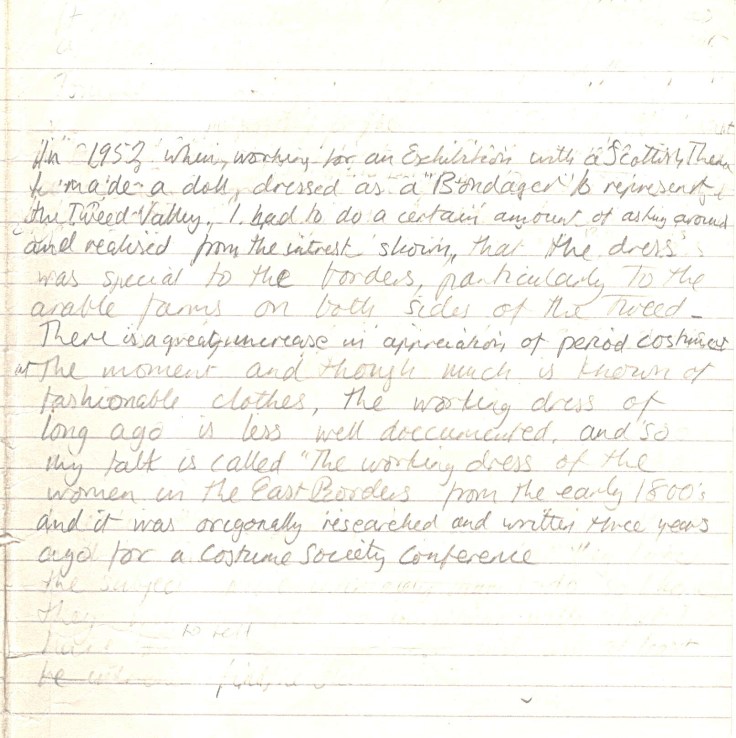 In 1952 when, working for an Exhibition with a Scottish Theme
I made a doll, dressed as a "Bondager" to represent
the Tweed Valley, I had to do a certain amount of asking around
and realised from the intrest shown, that the dress
was special to the borders, particularly to the
arable farms on both sides of the Tweed -
There is a great increase in appreciation of period costumes
at the moment and though much is known of
fashionable clothes, the working dress of
long ago is less well doccumented, and so
my talk is called "The working dress of the
women in the East Borders from the early 1800's
and it was origonally researched and written three years
ago for a Costume Society Conference "
the
they
to
be